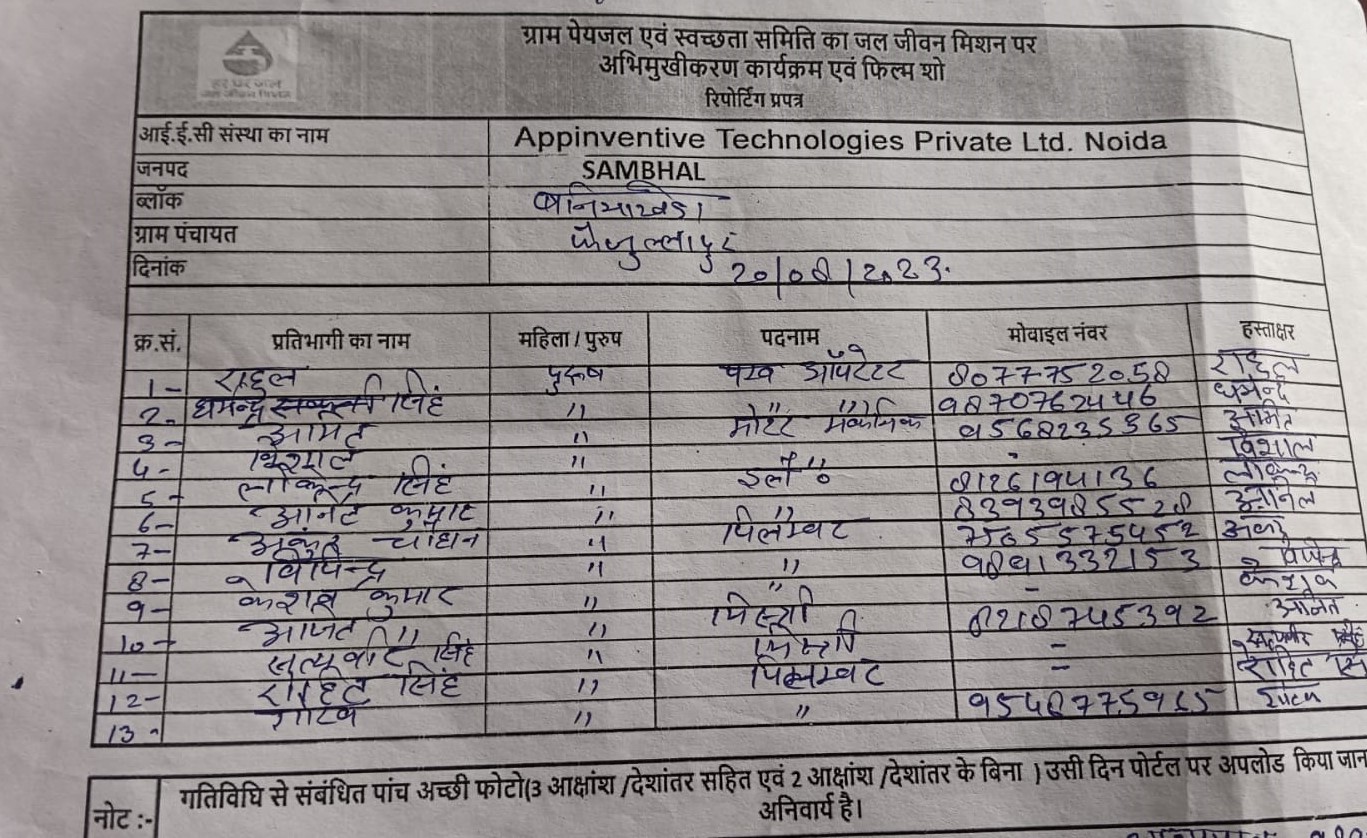 हर घर जल
जल जीवन मिशन
ग्राम पेयजल एवं स्वच्छता समिति का जल जीवन मिशन पर
अभिमुखीकरण कार्यक्रम एवं फिल्म शो
रिपोर्टिंग प्रपत्र
आई.ई.सी संस्था का नाम Appinventive Technologies Private Ltd. Noida
जनपद SAMBHAL
ब्लॉक बनियाखेडा
ग्राम पंचायत फैजुल्लापुर
दिनांक 20/08/2023.
क्र.सं. प्रतिभागी का नाम महिला / पुरुष पदनाम मोबाइल नंवर हस्ताक्षर
1- राहुल पुरूष पम्प ऑपरेटर 8077752058 राहुल
2- धर्मेन्द्र सिंह " " " 9870762446 धर्मेन्द्र
3- अमित " मोटर मकेनिक 9568235365 अमित
4- विशाल " " - विशाल
5- लोकेन्द्र सिंह " इले० 8126194136 लोकेन्द्र
6- अनिल कुमार " " 8393985528 अनिल
7- अंकुर चौधन " पिलम्वर 7505575452
8- विपिन्द्र " " 9891332153
9- केशव कुमार " " - केशव
10- अजित " " मिस्त्री 8218745392 अजित
11- सत्यवीर सिंह " मिस्त्री - सत्यवीर सिंह
12- रोहित सिंह " पिलम्वर - रोहित
13- गौरव " " 9548775965
नोट :- गतिविधि से संबंधित पांच अच्छी फोटो(3 आक्षांश /देशांतर सहित एवं 2 आक्षांश /देशांतर के बिना ) उसी दिन पोर्टल पर अपलोड किया जान
अनिवार्य है।